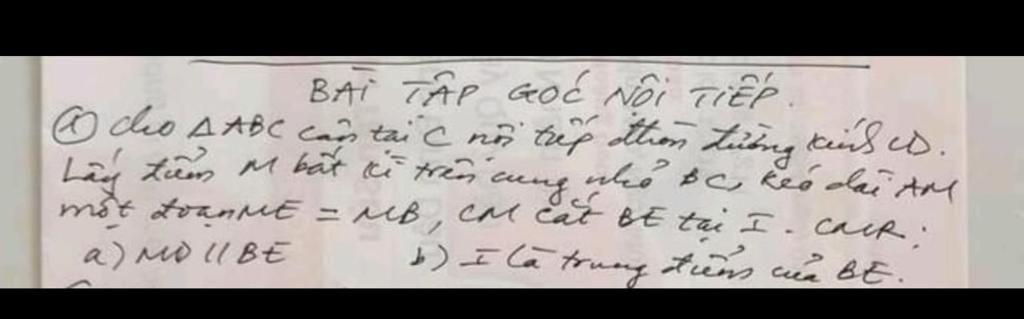 BÀI TẬP GÓC NỘI TIẾP.
① cho △ABC cân tại C nội tiếp đtròn đường kính CD.
Lấy điểm M bất kì trên cung nhỏ BC, kéo dài AM
một đoạn ME = MB, CM cắt BE tại I. CMR:
a) MD // BE b) I là trung điểm của BE.